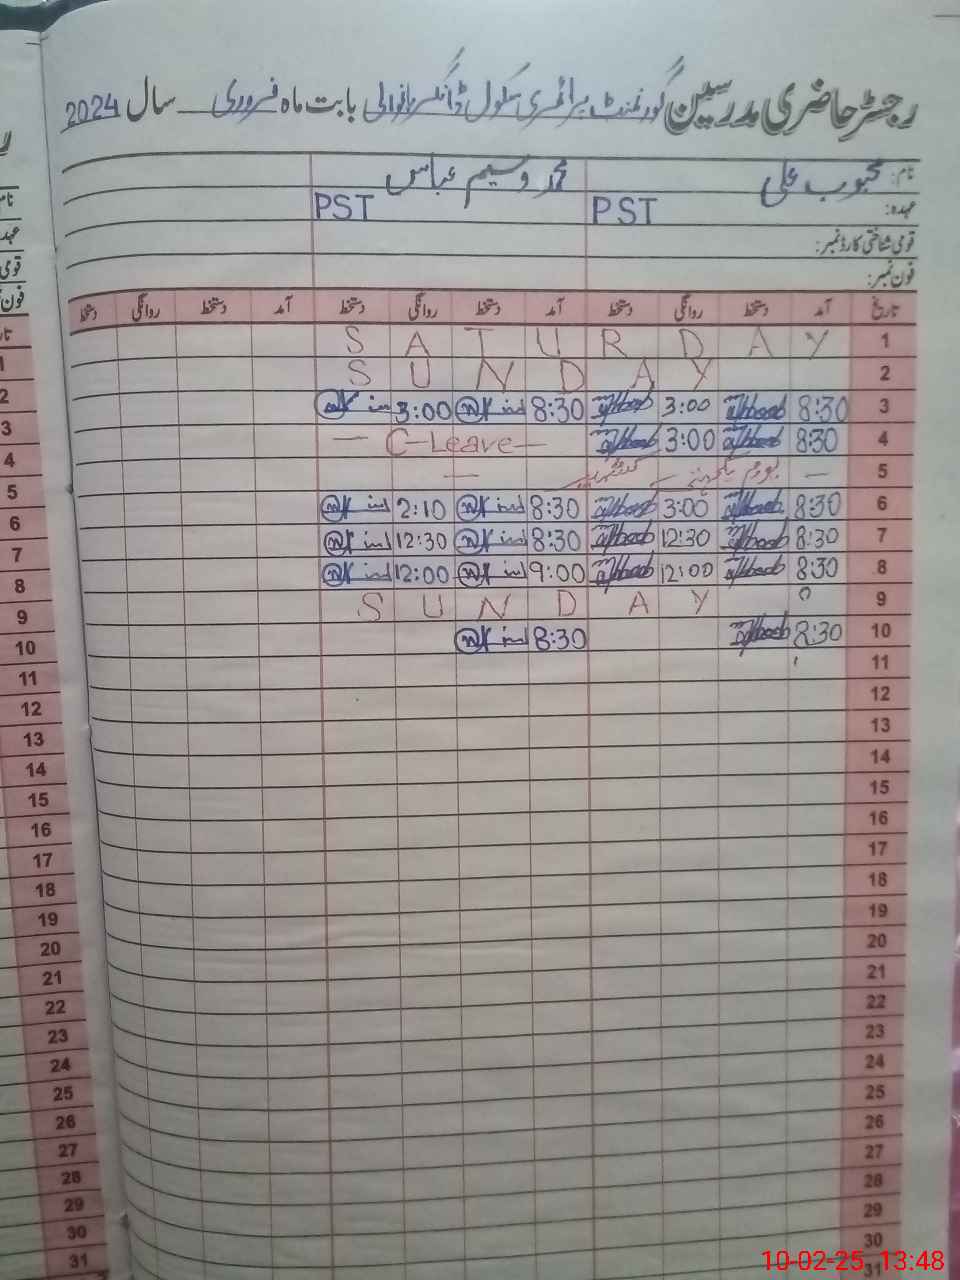 رجسٹر حاضری مدرسین گورنمنٹ پرائمری سکول بابت ماہ فروری سال 2024
نام: محبوب علی محمد وسیم عباس
عہدہ: PST PST
قومی شناختی کارڈ نمبر:
فون نمبر:
تاریخ آمد دستخط روانگی دستخط آمد دستخط روانگی دستخط آمد دستخط روانگی دستخط
1 SATURDAY
2 SUNDAY
3 8:30 3:00 8:30 3:00
4 8:30 3:00 — C-Leave —
5 — یوم یکجہتی کشمیر —
6 8:30 3:00 8:30 2:10
7 8:30 12:30 8:30 12:30
8 8:30 12:00 9:00 12:00
9 SUNDAY
10 8:30 8:30
11
12
13
14
15
16
17
18
19
20
21
22
23
24
25
26
27
28
29
30
31
نام
عہدہ
قومی
فون
1
2
3
4
5
6
7
8
9
10
11
12
13
14
15
16
17
18
19
20
21
22
23
24
25
26
27
28
29
30
31
10-02-25 13:48